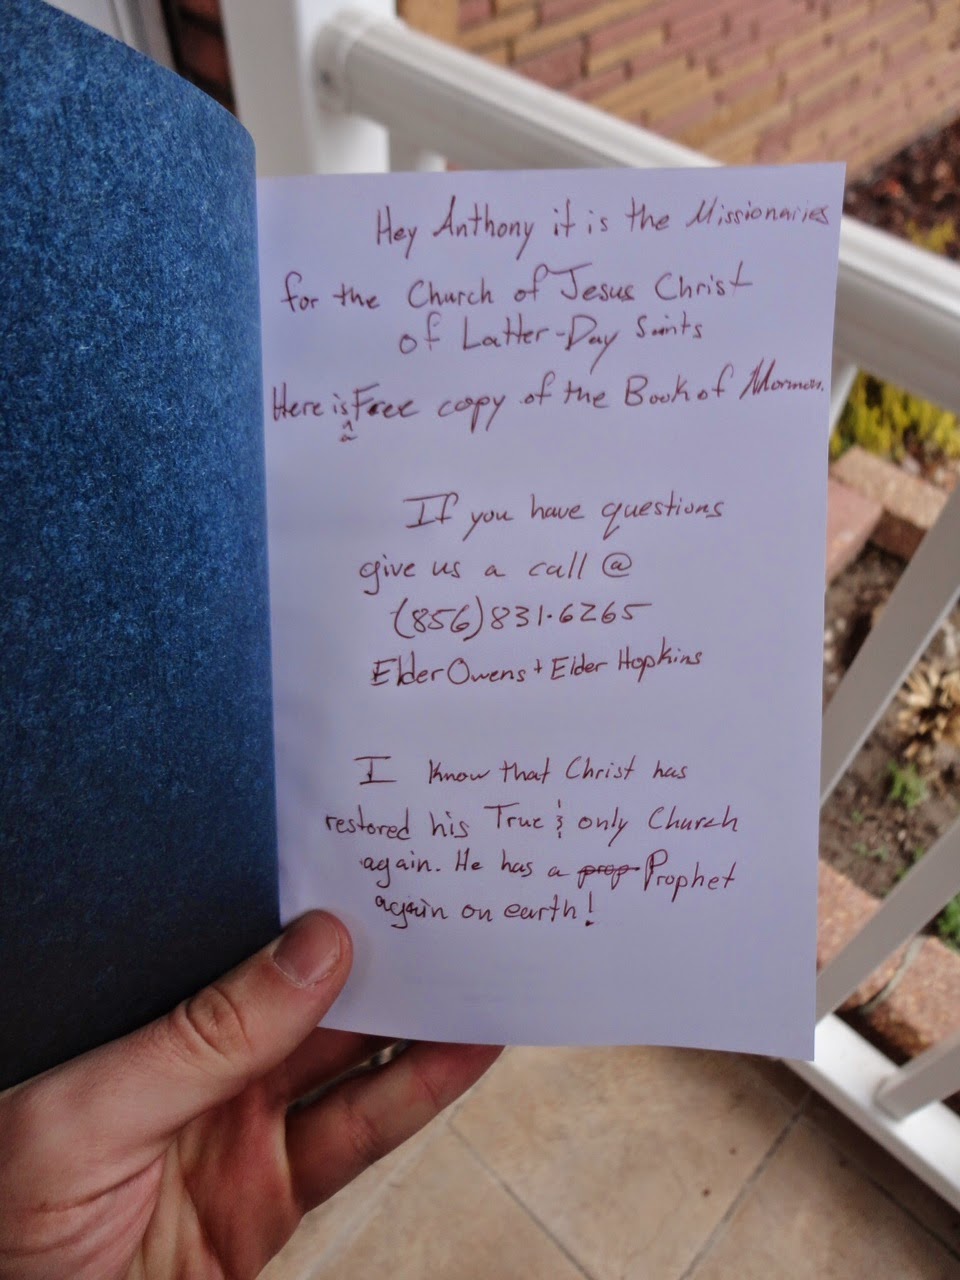 Hey Anthony it is the Missionaries
for the Church of Jesus Christ
of Latter-Day Saints
Here is a Free copy of the Book of Mormon.
If you have questions
give us a call @
(856)831-6265
Elder Owens + Elder Hopkins
I know that Christ has
restored his True & only Church
again. He has a prop Prophet
again on earth!